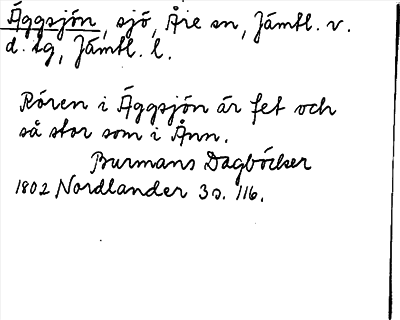 Äggsjön, sjö, Åre sn, Jämtl. v.
d. tg, Jämtl. l.
Rören i Äggsjön är fet och
så stor som i Ånn.
Burmans Dagböcker
1802 Nordlander 3 s. 116.